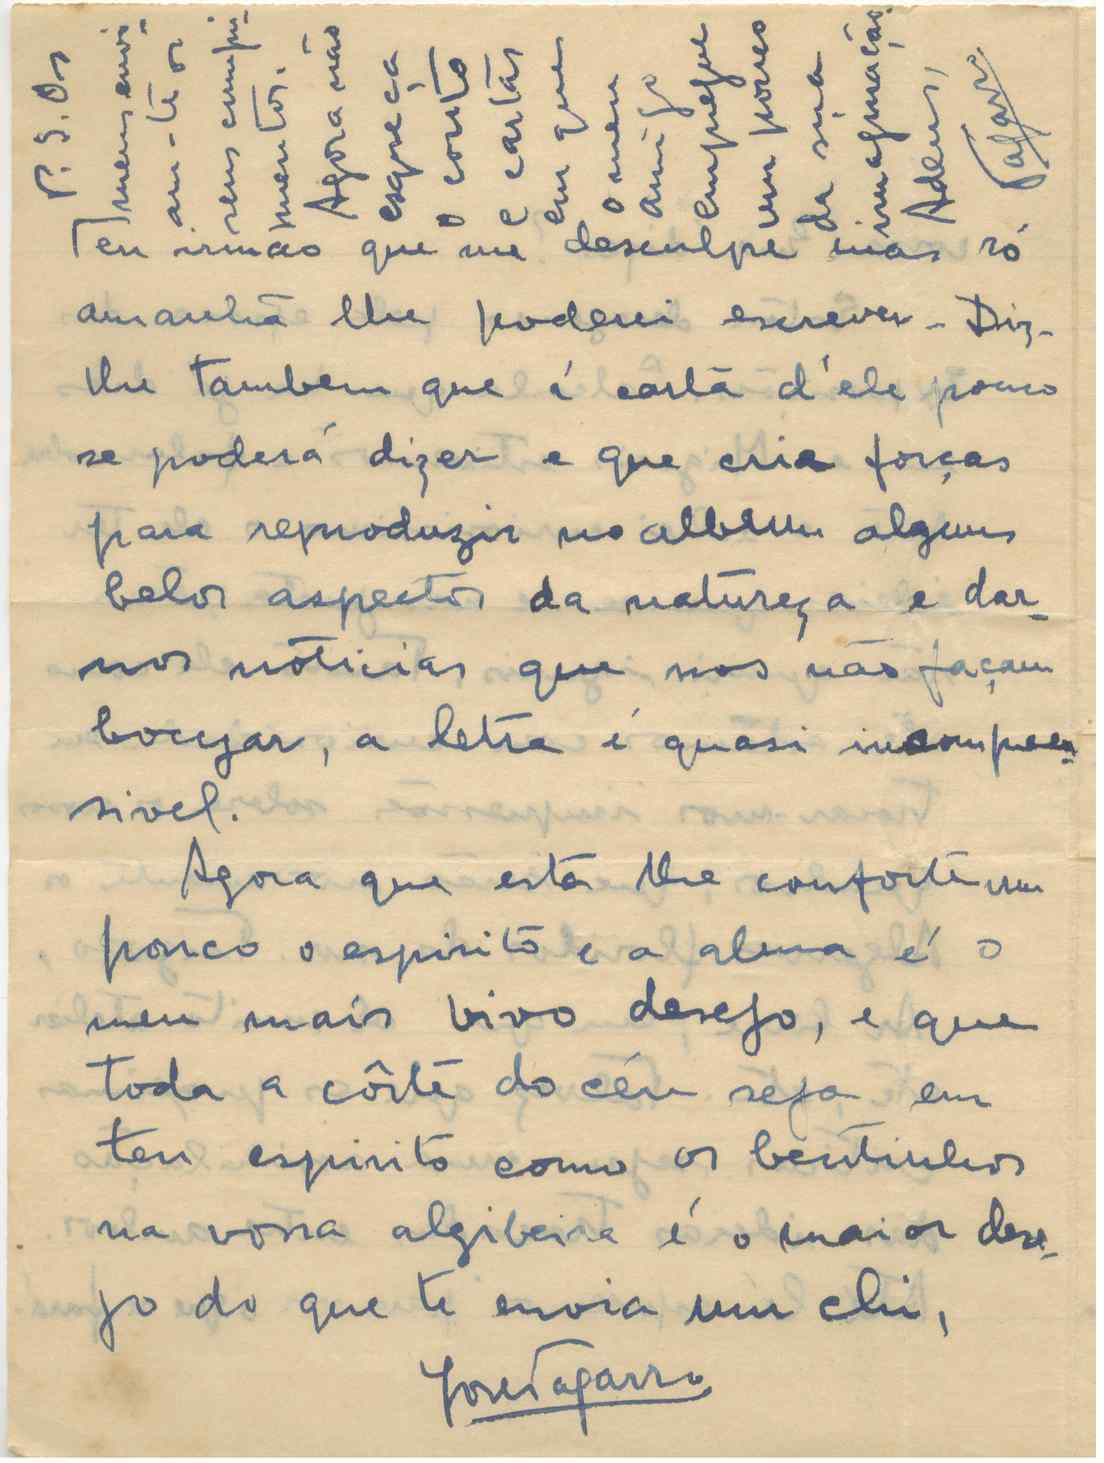 Teu irmão que me desculpe mas só
amanhã lhe poderei escrever - Diz-
lhe tambem que é carta d'ele pouco
se poderá dizer e que cria forças
para reproduzir no album alguns
belos aspectos da natureza e dar-
nos nóticias que nos não façam
bocejar, a letra é quasi incompreen-
sivel.
Agora que esta lhe conforte um
pouco o espirito e a alma é o
meu mais vivo desejo, e que
toda a côrte do céu seja em
teu espirito como os bentinhos
na vossa algibeira é o maior dese-
jo do que te envia um chi,
José Tagarro
P.S. Os
meus envi-
am-te os
seus cumpri-
mentos.
Agora não
esqueça
o conto
e cartas
em que
o meu
amigo
empregue
um pouco
da sua
imaginação.
Adeus,
Tagarro